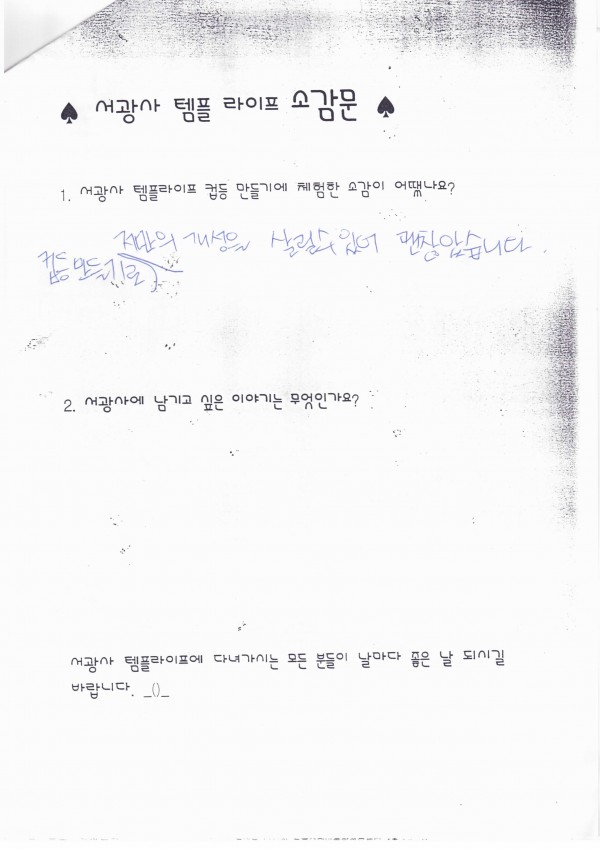 ♠ 서광사 템플 라이프 소감문 ♠
1. 서광사 템플라이프 컵등 만들기에 체험한 소감이 어땠나요?
컵등 만들기로 저만의 개성을 살릴수 있어 괜찮았습니다.
2. 서광사에 남기고 싶은 이야기는 무엇인가요?
서광사 템플라이프에 다녀가시는 모든 분들이 날마다 좋은 날 되시길
바랍니다. _()_